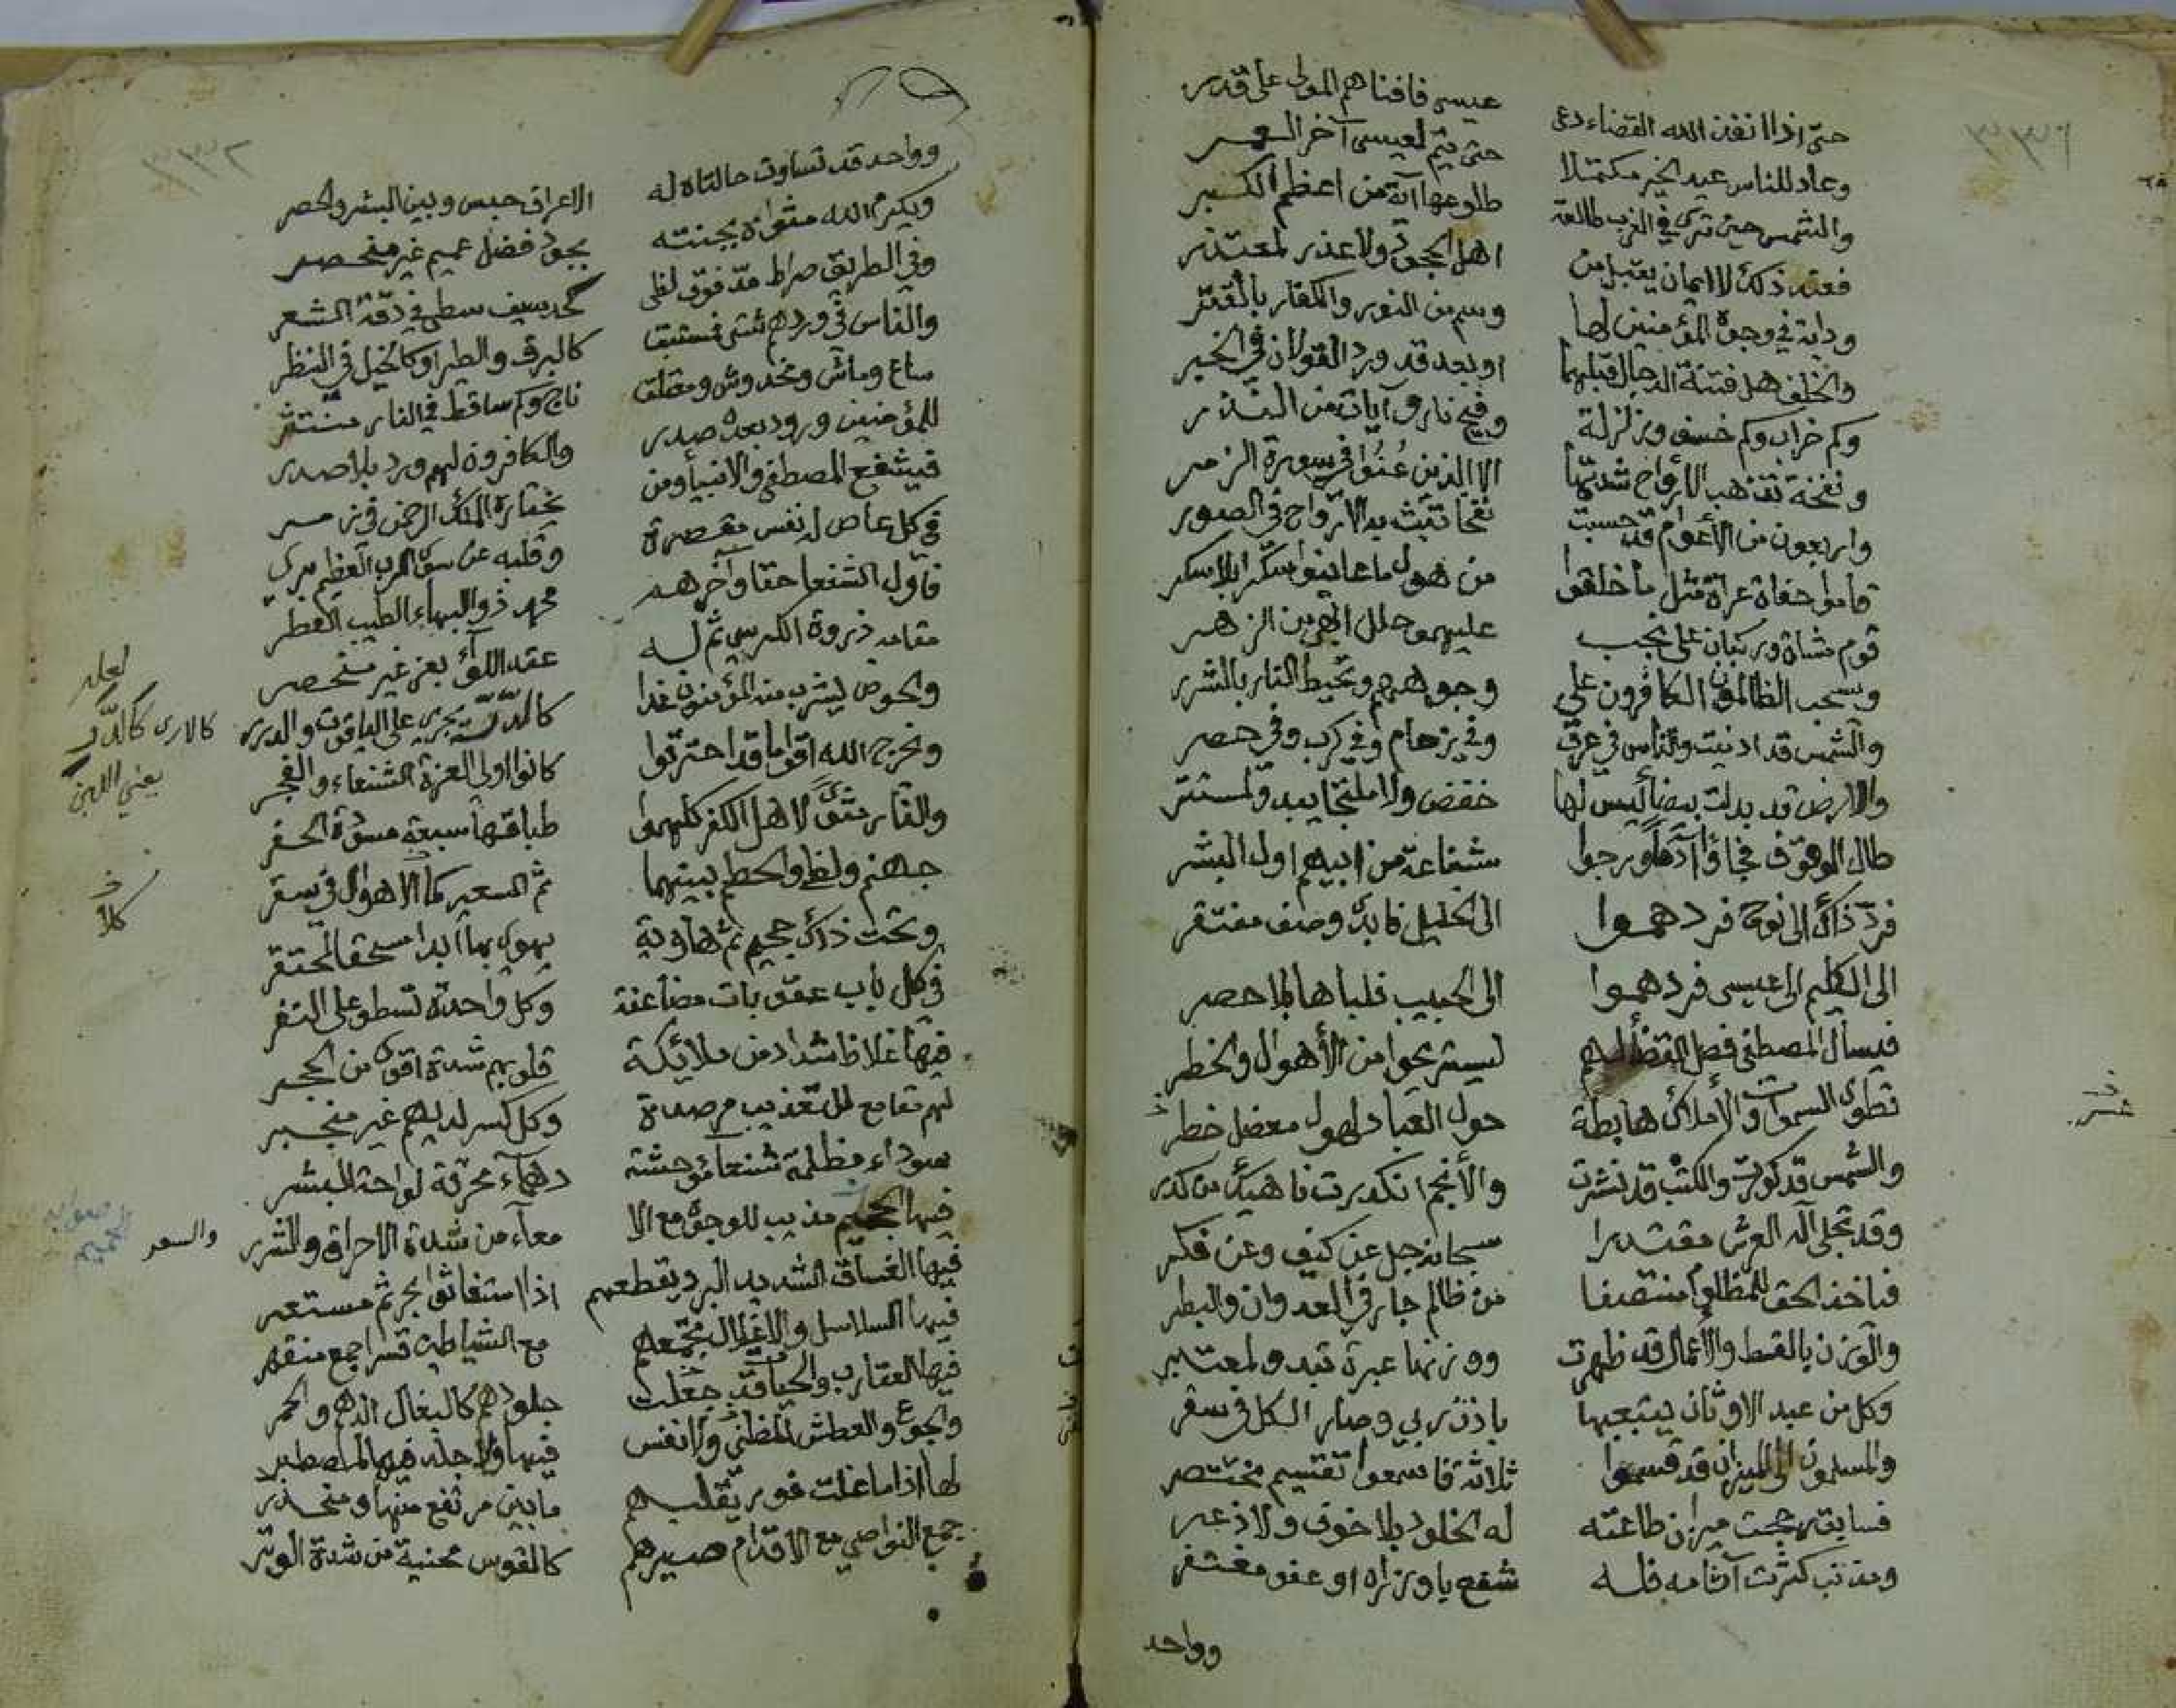 حتى اذا نفذ الله القضاء دعى عيسى فافناهم المولى على قدر
وعاد للناس عيد الخير مكتملا حتى يتم لعيسى آخر العمر
والشمس حين ترى في الغرب طالعة طلوعها آية من اعظم الكبر
فعند ذلك لا ايمان يقبل من اهل الجحود ولا عذر لمعتذر
ودابة في وجوه المؤمنين لها وسم من النور والكفار بالقتر
والخلف هل فتنة الدجال قبلهما او بعد قد ورد القولان في الخبر
وكم خراب وكم خسف وزلزلة وفيح نار وآيات من النذر
ونفخة تذهب الأرواح شدتها الا الذين عنوا في سورة الزمر
واربعون من الأعوام قد حسبت نفخا تبث به الارواح في الصور
قاموا حفاة عراة مثل ما خلقوا من هول ما عاينوا سكرا بلا سكر
قوم مشاة وركبان على نجب عليهمو حلل ابهى من الزهر
ويسحب الظالمون الكافرون على وجوههم وتحيط النار بالشرر
والشمس قد ادنيت والناس في عرق وفي زحام وفي كرب وفي حصر
والارض قد بدلت بيضا ليس لها خفض ولا ملتجا يبدو لمستتر
طال الوقوف فجاؤا آدما ورجوا شفاعة من ابيهم اول البشر
فرد ذاك الى نوح فردهموا الى الخليل فابدى وصف مفتقر
الى الكليم الى عيسى فردهموا الى الحبيب فلباها بلا حصر
فيسأل المصطفى فصل القضا لهم ليستريحوا من الأهوال والخطر
تطوى السموات والأملاك هابطة حول العباد لهول معضل خطر
عسر
والشمس قد كورت والكتب قد نشرت والأنجم انكدرت ناهيك من كدر
وقد تجلى آله العرش مقتدرا سبحانه جل عن كيف وعن فكر
فياخذ الحق للمظلوم منتصفا من ظالم جار في العدوان والبطر
والوزن بالقسط والأعمال قد ظهرت ووزنها عبرة تبدو لمعتبر
وكل من عبد الاوثان يتبعها باذن ربي وصار الكل في سقر
والمسلمون الى الميزان قد قسموا ثلاثة فاسمعوا تقسيم مختصر
فسابق رجحت ميزان طاعته له الخلود بلا خوف ولا ذعر
ومذنب كثرت آثامه فله شفع باوزاره او عفو مغتفر
وواحد
وواحد قد تساوت حالتاه له الاعراف حبس وبين البشر والحصر
ويكرم الله مثواه بجنته بجود فضل عميم غير منحصر
وفي الطريق صراط مد فوق لظى كحد سيف سطى في دقة الشعر
والناس في وردهم شتى فمستبق كالبرق والطير او كالخيل في النظر
ساع وماش ومخدوش ومعتلق ناج وكم ساقط في النار منتثر
للمؤمنين ورود بعده صدر والكافرون لهم ورد بلا صدر
فيشفع المصطفى والانبيا ومن يختاره الملك الرحمن في زمر
في كل عاص له نفس مقصرة وقلبه عن سوى الرب العظيم بري
فأول الشفعا حقا وآخرهم محمد ذو البهاء الطيب العطر
مقامه ذروة الكرسي ثم له عقد اللواء بعز غير منحصر
والحوض يشرب منه المؤمنون غدا كالدر يجري على الياقوت والدرر
لعله
كالارى كالدر
يعني اللبن
ويخرج الله اقواما قد احترقوا كانوا اولى العزة الشنعاء والفجر
والنار مثوى لاهل الكفر كلهموا طباقها سبعة مسودة الحفر
جهنم ولظى والحطم بينهما ثم السعير كما الاهوال في سقر
كلا
وتحت ذاك جحيم ثم هاوية يهوي بها ابدا سحقا لمحتقر
في كل باب عقوبات مضاعفة وكل واحدة تسطو على النفر
فيها غلاظ شداد من ملائكة قلوبهم شدة اقوى من الحجر
لهم مقامع للتعذيب مرصدة وكل كسر لديهم غير منجبر
سوداء مظلمة شنعاء وحشة دهماء محرقة لواحة البشر
فيها الجحيم مذيب للوجوه مع الا معاء من شدة الاحراق والشرر
والسعر
صوابه الحميم
فيها الغساق الشديد البرد يقطعهم اذا استغاثوا بحر ثم مستعر
فيها السلاسل والاغلال تجمعهم مع الشياطين قسرا جمع منقهر
فيها العقارب والحيات قد جعلت جلودهم كالبغال الدهم والحمر
والجوع والعطش المظني ولا نفس فيها ولا جلد فيها لمصطبر
لها اذا ما غلت فور يقلبهم ما بين مرتفع منها ومنحدر
جمع النواصي مع الاقدام صيرهم كالقوس محنية من شدة الوتر